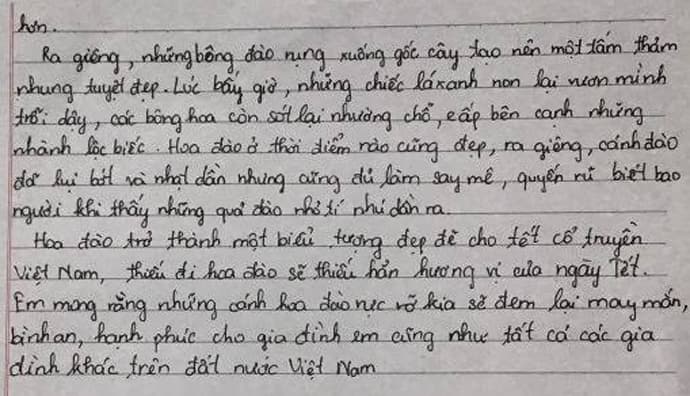 hơn.
Ra giêng, những bông đào rụng xuống gốc cây tạo nên một tấm thảm
nhung tuyệt đẹp. Lúc bấy giờ, những chiếc lá xanh non lại vươn mình
trỗi dậy, các bông hoa còn sót lại nhường chỗ, cấp bên cạnh những
nhành lộc biếc. Hoa đào ở thời điểm nào cũng đẹp, ra giêng, cánh đào
đã lui bớt và nhạt dần nhưng cũng đủ làm say mê, quyến rũ biết bao
người khi thấy những quả đào nhỏ tí nhú dần ra.
Hoa đào trở thành một biểu tượng đẹp đẽ cho tết cổ truyền
Việt Nam, thiếu đi hoa đào sẽ thiếu hẳn hương vị của ngày Tết.
Em mong rằng những cánh hoa đào rực rỡ kia sẽ đem lại may mắn,
bình an, hạnh phúc cho gia đình em cũng như tất cả các gia
đình khác trên đất nước Việt Nam